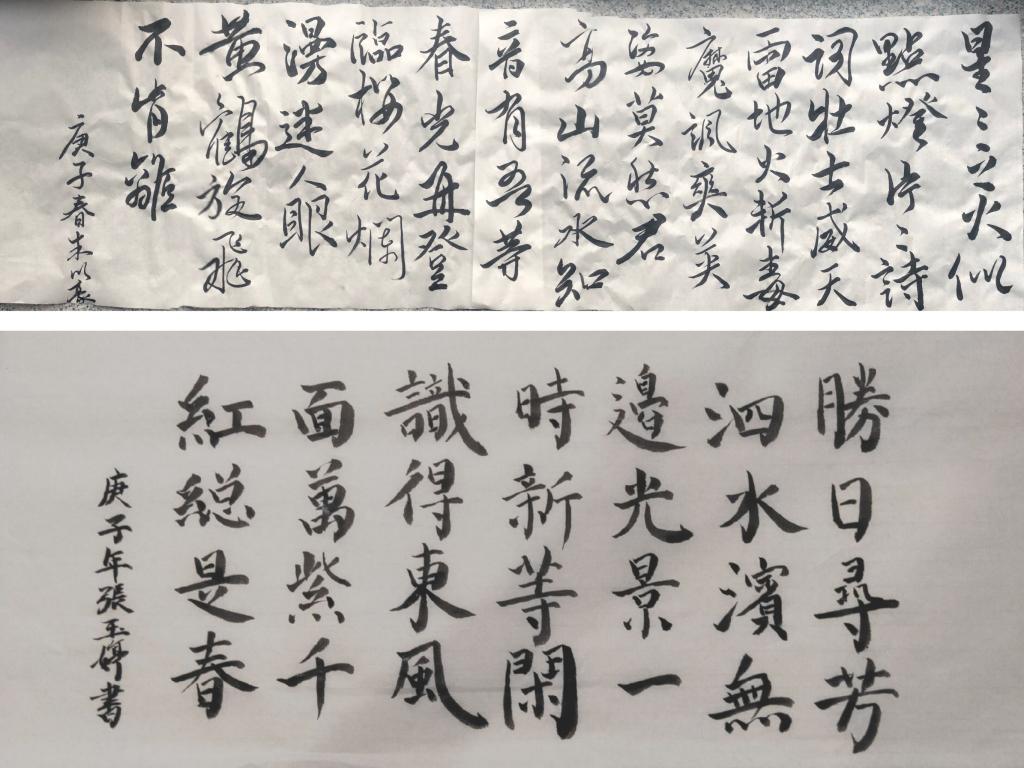 星〻之火似
點燈片〻詩
詞壯士威天
雷地火斬毒
魔颯爽英
姿莫愁君
高山流水知
音有吾等
春光再登
臨櫻花爛
漫迷人眼
黄鶴旋飛
不肯離
庚子春朱以
勝日尋芳
泗水濱無
邊光景一
時新等閑
識得東風
面萬紫千
紅総是春
庚子年張玉婷書